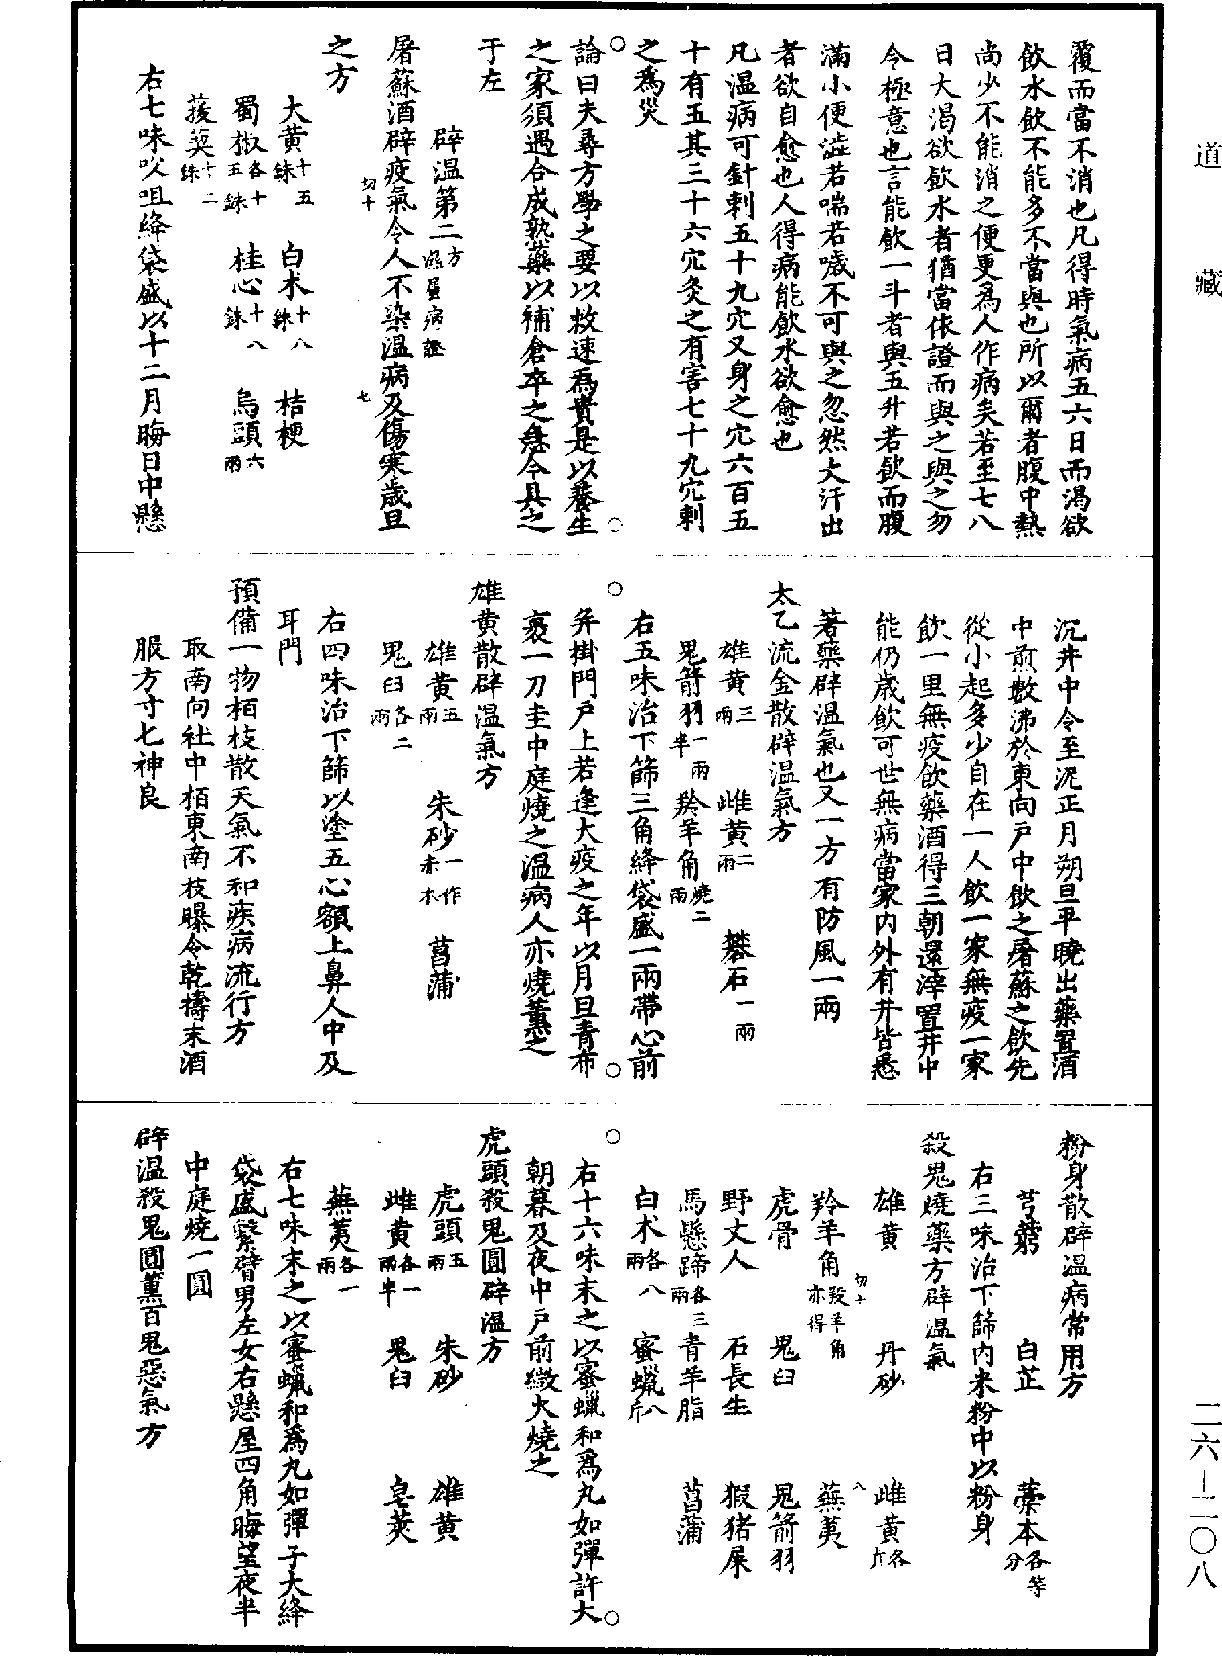 道藏
覆而當不消也凡得時氣病五六日而渴欲
飲水飲不能多不當與也所以爾者腹中熱
尚少不能消之便更爲人作病矣若至七八
日大渴欲飲水者猶當依證而與之與之勿
令極意也言能飲一斗者與五升若飲而腹
滿小便澁若喘若噦不可與之忽然大汗出
者欲自愈也人得病能飲水欲愈也
凡温病可針刺五十九穴又身之穴六百五
十有五其三十六穴灸之有害七十九穴刺
之爲災
論曰夫尋方學之要以救速爲貴是以養生
之家須遇合成熟藥以補倉卒之急今具之
于左
辟温第二方
屠蘇酒辟疫氣令人不染温病及傷寒歲旦
之方
切十 七
大黄十五銖 白术十八銖 桔梗
蜀椒各十五銖 桂心十八銖 烏頭六兩
菝葜十二銖
右七味㕮咀絳袋盛以十二月晦日中懸
沉井中令至泥正月朔旦平曉出藥置酒
中煎數沸於東向戶中飲之屠蘇之飲先
從小起多少自在一人飲一家無疫一家
飲一里無疫飲藥酒得三朝還滓置井中
能仍歲飲可世無病當家內外有井皆悉
著藥辟温氣也又一方有防風一兩
太乙流金散辟温氣方
雄黄三兩 雌黄二兩 礬石一兩
鬼箭羽一兩半 羚羊角燒二兩
右五味治下篩三角絳袋盛一兩帶心前
并掛門戶上若逢大疫之年以月旦青布
裹一刀圭中庭燒之温病人亦燒薰之
雄黄散辟温氣方
雄黄五兩 朱砂一作赤木 菖蒲
鬼臼各二兩
右四味治下篩以塗五心額上鼻人中及
耳門
預備一物栢枝散天氣不和疾病流行方
取南向社中栢東南枝曝令乾擣末酒
服方寸七神良
粉身散辟温病常用方
芎藭 白芷 藁本各等分
右三味治下篩內米粉中以粉身
殺鬼燒藥方辟温氣
雄黄 丹砂 雌黄各斤
切十 八
羚羊角羖羊角亦得 蕪荑
虎骨 鬼臼 鬼箭羽
野丈人 石長生 猳猪屎
馬懸蹄各三兩 青羊脂 菖蒲
白术各八兩 蜜蠟八斤
右十六味末之以蜜蠟和爲丸如彈許大
朝暮及夜中戶前微火燒之
虎頭殺鬼圓辟温方
虎頭五兩 朱砂 雄黄
雌黄各一兩半 鬼臼 皂莢
蕪荑各一兩
右七味末之以蜜蠟和爲丸如彈子大絳
袋盛繫臂男左女右懸屋四角晦望夜半
中庭燒一圓
辟温殺鬼圓薰百鬼惡氣方
二六—二〇八